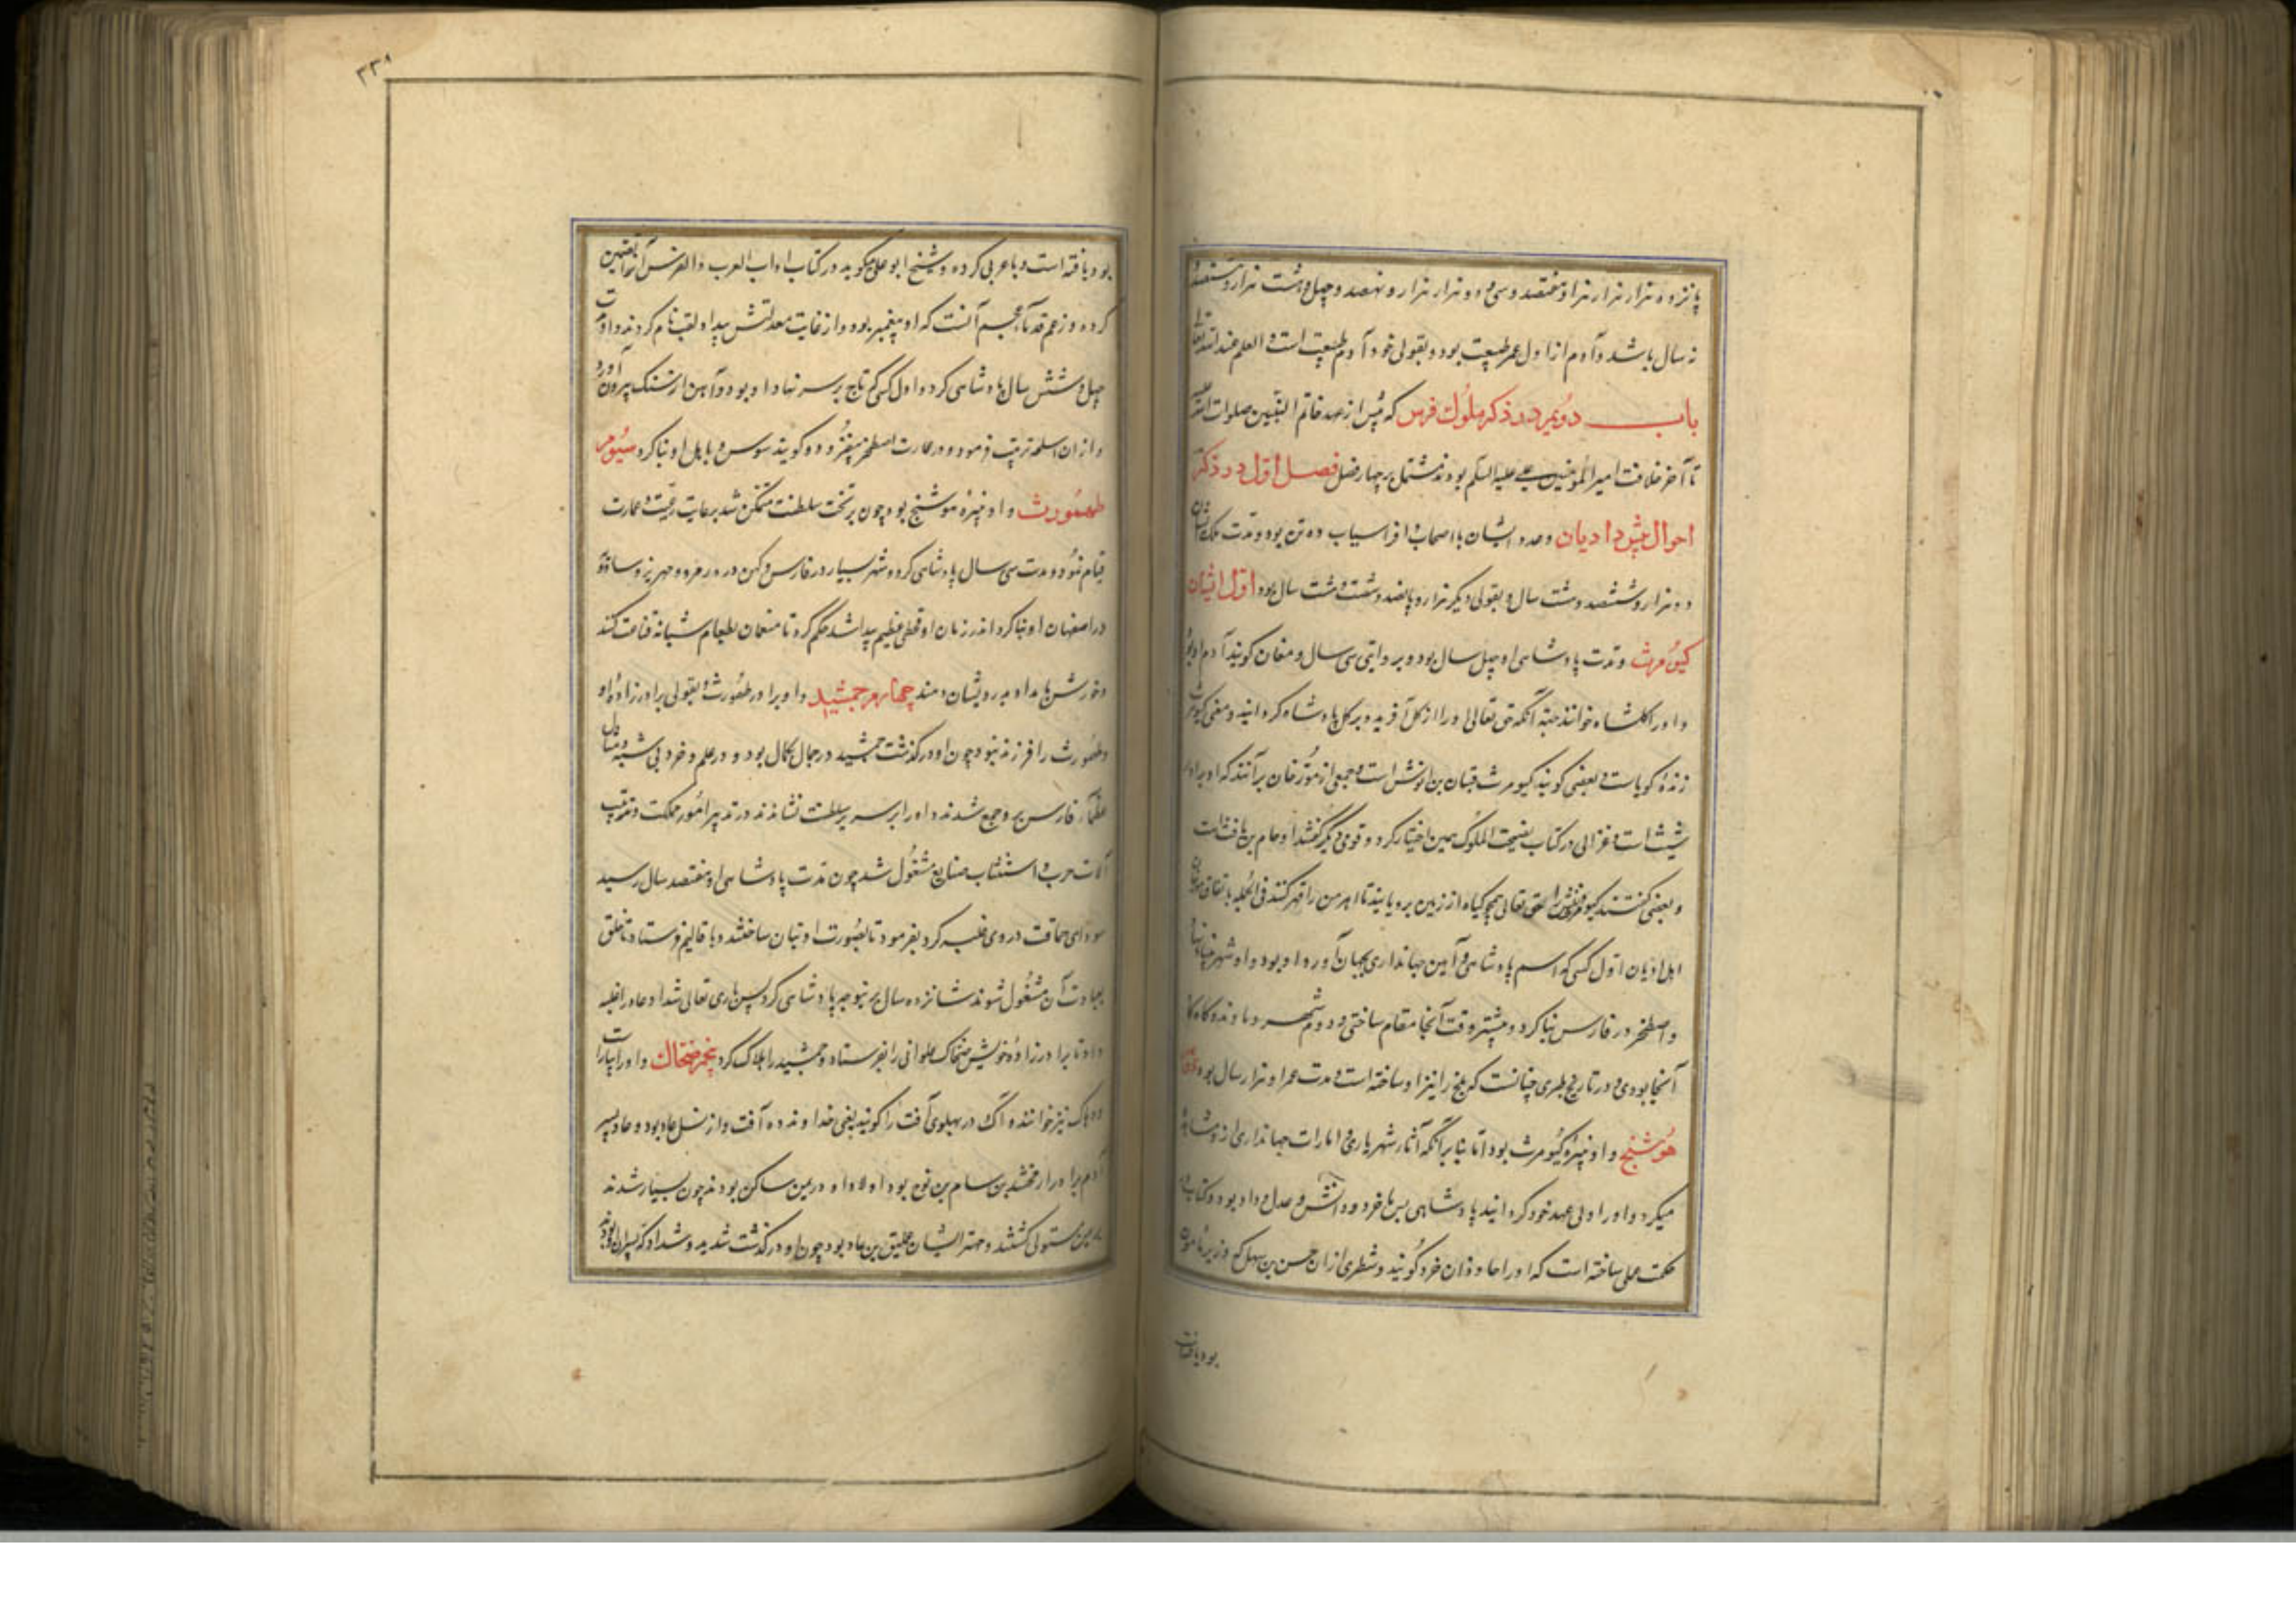 پانزده هزار هزار هزار و هفتصد و سی و دو هزار هزار و نهصد و چهل و هشت هزار و ششصد
و سال باشد و آدم از اول عمر طبیعت بود و بقولی خود آدم طبیعت است و العلم عند الله تعالی
باب دویم در ذکر ملوک فرس که پیش از عهد خاتم النبیین صلوات الله علیه
تا آخر خلافت امیر المؤمنین علی علیه السلم بودند مشتمل بر چهار فصل فصل اول در ذکر
احوال پیش دادیان و عدد ایشان با اصحاب افراسیاب ده تن بود و مدت ملک شان
دو هزار و ششصد و شت سال و بقولی دیکر هزار و پانصد و شصت و هشت سال بود اول ایشان
کیومرث و مدت پادشاهی او چهل سال بود و بروایتی سی سال و مغان کویند آدم او بود
و او را کلشاه خوانند جهة آنکه حق تعالی او را از کل آفرید و بر کل پادشاه کردانید و معنی کیومرث
زنده کویاست و بعضی کویند کیومرث قینان بن انوش است و جمعی از مؤرخان برآنند که او برادر
شیث است و غزالی در کتاب نصیحت الملوک همین اختیار کرد و قومی دیگر گفتند او حام بن یافث است
و بعضی گفتند کیومرث را حق تعالی همچو کیاه از زمین برویانید تا اهرمن را قهر کند فی الجمله باتفاق
اهل ادیان اول کسی که اسم پادشاهی و آیین جهانداری بجهان آورد او بود و او شهر بنا نهاد
و اصطخر در فارس بنا کرد و بیشتر وقت آنجا مقام ساختی و دوم شهر دماوند و کاه کاه
آنجا بودی و در تاریخ طبری چنانست که بلخ را نیز او ساخته است و مدت عمر او هزار سال بود دویم
هوشنج و او نبیره کیومرث بود اما بنا بر آنکه آثار شهریاری و امارات جهانداری از و مشاهده
میکرد و او را ولی عهد خود کردانید پادشاهی بس با خرد و دانش و عدل و داد بود و کتاب در
حکمت عملی ساخته است که او را جاودان خرد گویند و شطری از آن حسن بن سهل که وزیر مامون
بود یافته است
بود یافته است و با عربی کرده و شیخ ابو علی میکوید در کتاب آداب العرب و الفرس آنرا تضمین
کرده و زعم قدماء عجم آنست که او پیغمبر بود و از غایت معدلتش پیداد لقب نام کردند و او مدت
چهل و شش سال پادشاهی کرد و اول کسی که تاج بر سر نهاد او بود و آهن از سنک بیرون آورد
و از ان اسلحه ترتیب فرمود و در عمارت اصطخر بیفزود و کویند سوس و بابل او بنا کرد سیوم
طهمورث و او نبیره هوشنج بود چون بر تخت سلطنت متمکن شد برعایت رعیت و عمارت
قیام نمود و مدت سی سال پادشاهی کرد و شهر بسیار در فارس و کهن دز در مرو و مهرین و سارویه
در اصفهان او بنا کرد اندر زمان او قحطی عظیم پیدا شد حکم کرد تا منعمان بطعام شبانه قناعت کنند
و خورش بامداد بدرویشان دهند چهارم جمشید و او برادر طهمورث و بقولی برادرزاده او
و طهمورث را فرزند نبود چون او درگذشت جمشید در جمال بکمال بود و در علم و خرد بی شبه و مثال
عظماء فارس برو جمع شدند و او را بر سریر سلطنت نشاندند و در تدبیر امور مملکت و ترتیب
آلات حرب و استنباب صنایع مشغول شد چون مدت پادشاهی او هفتصد سال رسید
سودای حماقت در وی غلبه کرد بفرمود تا بصورت او بتان ساختند و با قالیم فرستاد تا خلق
بعبادت آن مشغول شوند شانزده سال برین وجه پادشاهی کرد پس باری تعالی شداد عاد را غلبه
داد تا برادرزاده خویش ضحاک علوانی را بفرستاد و جمشید را هلاک کرد پنجم ضحاک و او را بیوراسب
ده آک نیز خوانند و آک در پهلوی آفت را کویند یعنی خداوند ده آفت و از نسل عاد بود و عاد پسر
آدم برادر ارفخشد بن سام بن نوح بود اولاد او در یمن ساکن بودند چون بسیار شدند
بر یمن مستولی کشتند و مهتر ایشان عملیق بن عاد بود چون او درگذشت شدید و شداد که پسران او بودند
۲۳۱